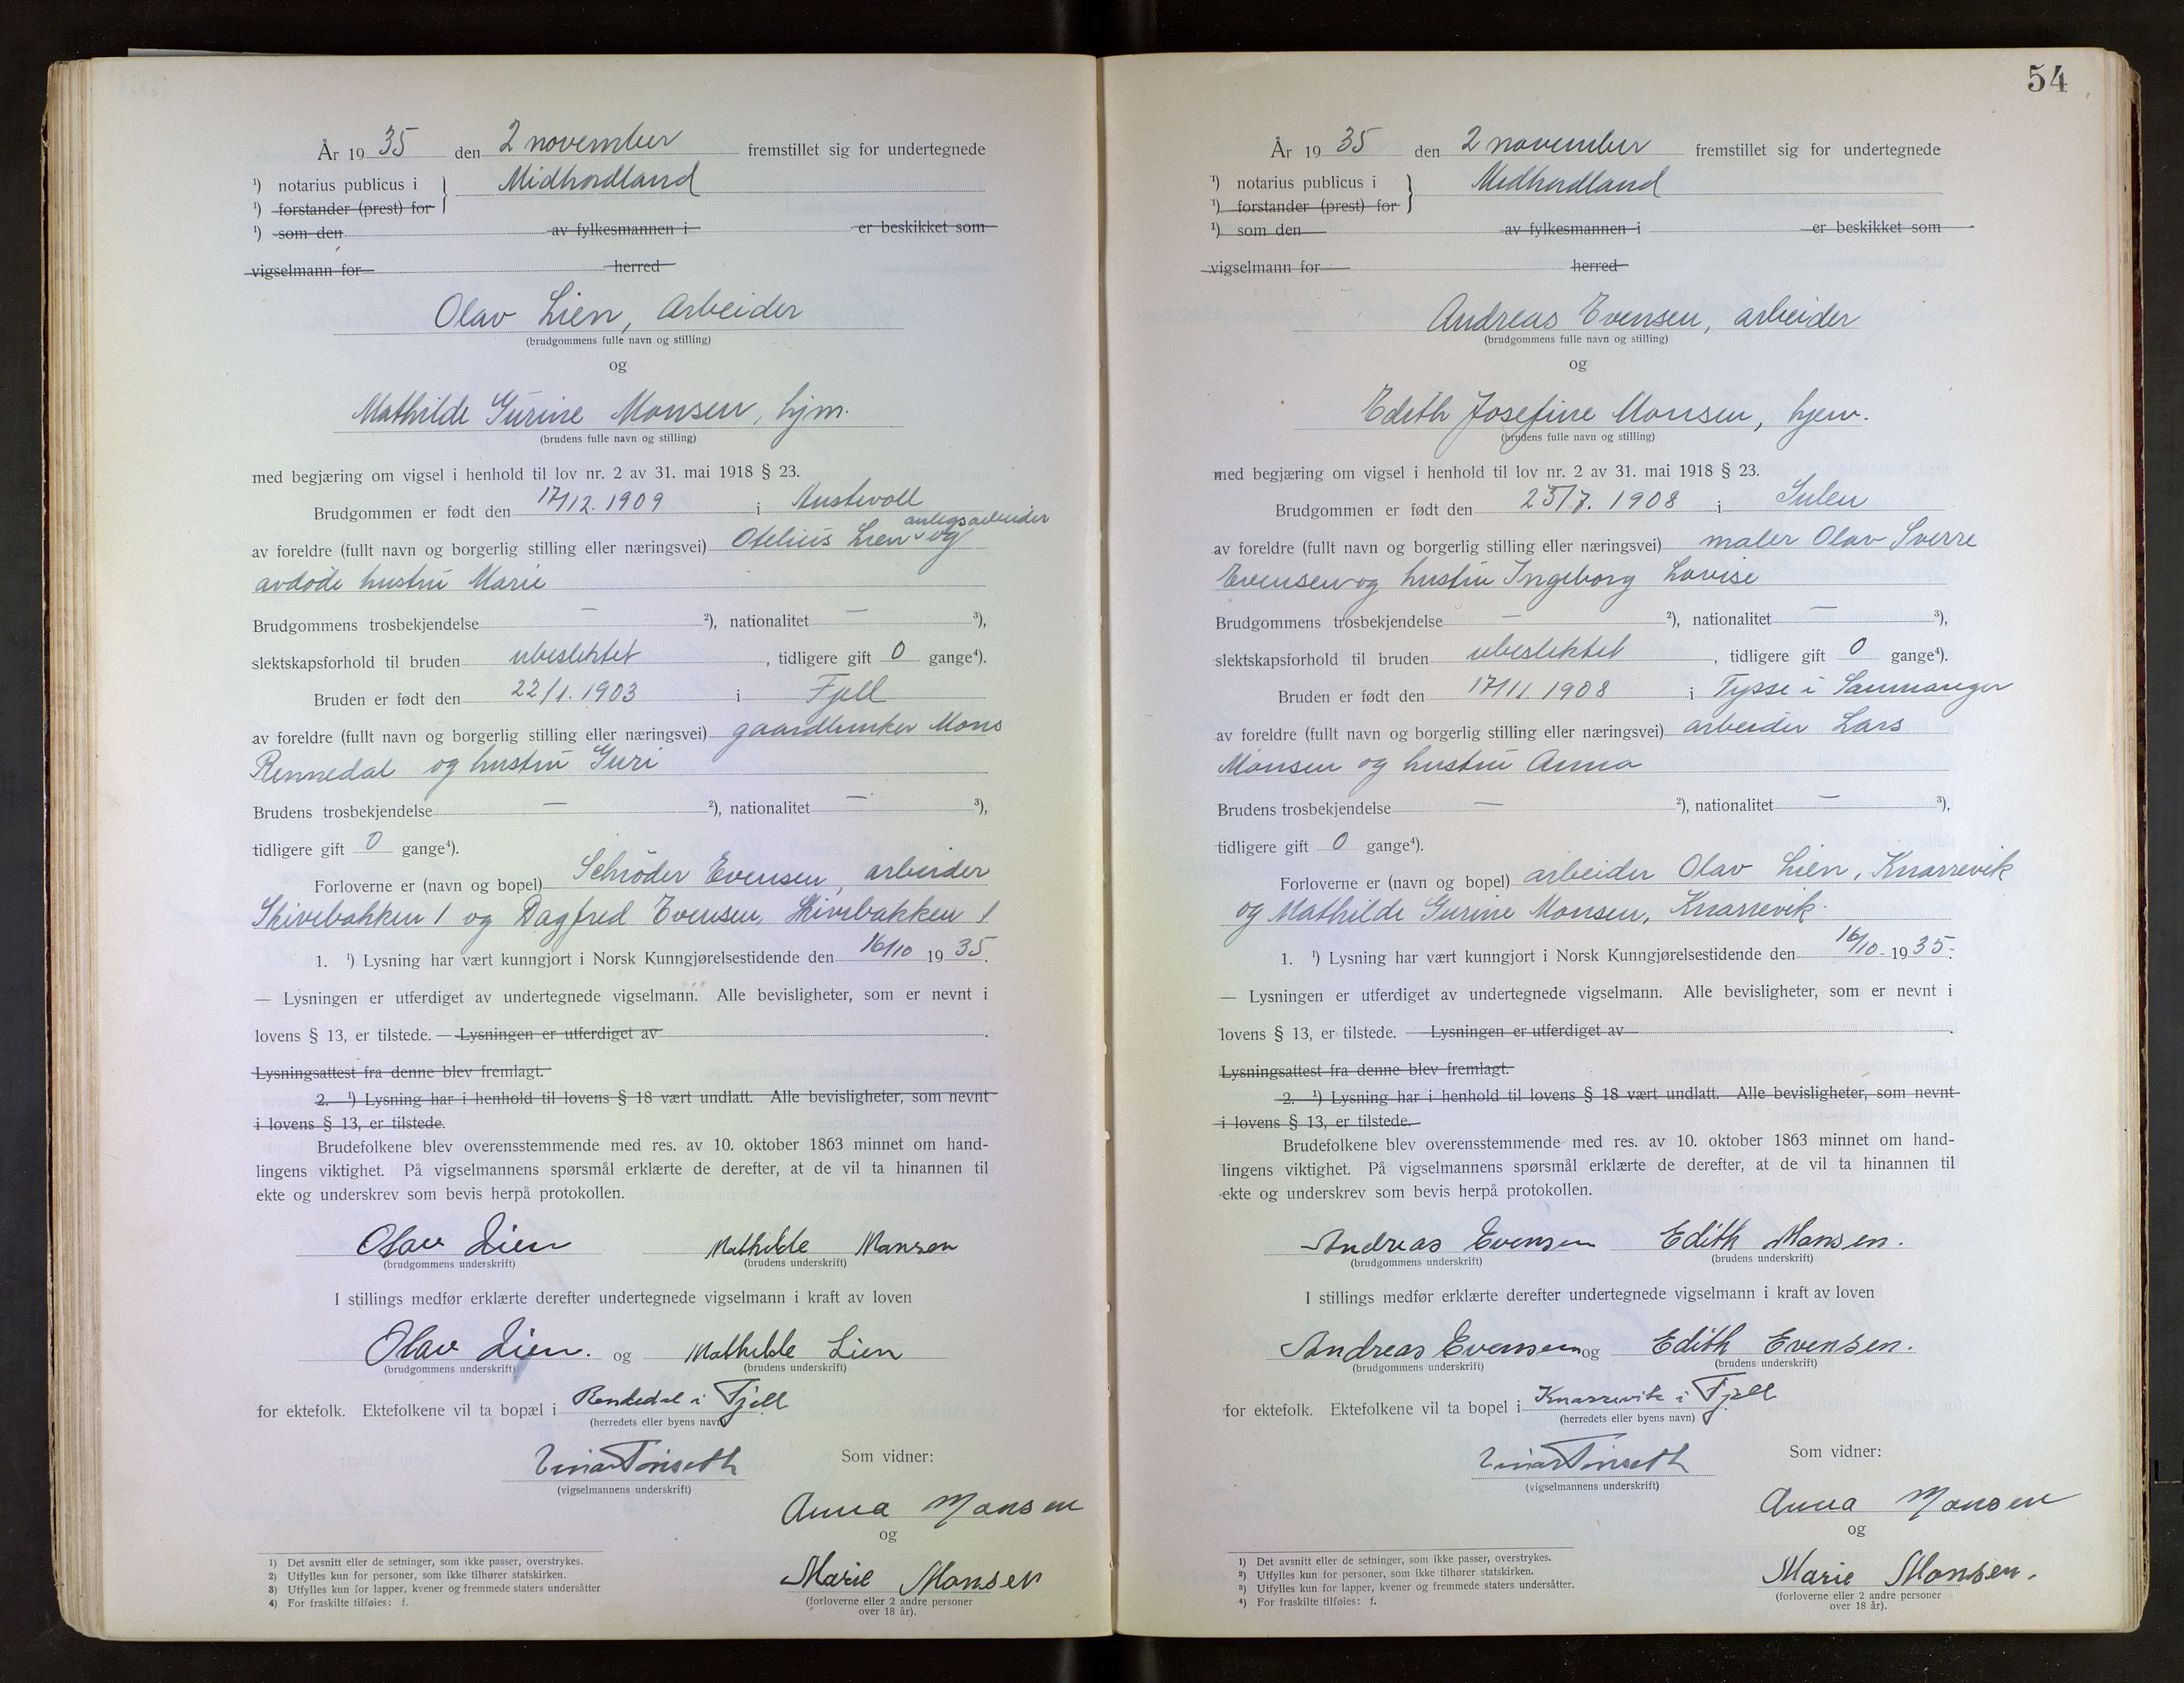 År 19 35 den 2 november fremstillet sig for undertegnede
¹) notarius publicus i Midhordland
¹) forstander (prest) for
¹) som den av fylkesmannen i er beskikket som
vigselmann for herred
Olav Lien, Arbeider
(brudgommens fulle navn og stilling)
og
Mathilde Gurine Monsen, hjm.
(brudens fulle navn og stilling)
med begjæring om vigsel i henhold til lov nr. 2 av 31. mai 1918 § 23.
Brudgommen er født den 17/12. 1909 i Austevoll
anlegsarbeider
av foreldre (fullt navn og borgerlig stilling eller næringsvei) Otelius Lien og
avdøde hustru Marie
Brudgommens trosbekjendelse — ²), nationalitet — ³),
slektskapsforhold til bruden ubeslektet, tidligere gift 0 gange⁴).
Bruden er født den 22/1. 1903 i Fjell
av foreldre (fullt navn og borgerlig stilling eller næringsvei) gaardbruker Mons
Rennedal og hustru Guri
Brudens trosbekjendelse — ²), nationalitet — ³),
tidligere gift 0 gange⁴).
Forloverne er (navn og bopel) Schrøder Evensen, arbeider
Skivebakken 1 og Dagfred Evensen, Skivebakken 1
1. ¹) Lysning har vært kunngjort i Norsk Kunngjørelsestidende den 16/10 19 35.
— Lysningen er utferdiget av undertegnede vigselmann. Alle bevisligheter, som er nevnt i
lovens § 13, er tilstede. — Lysningen er utferdiget av .
Lysningsattest fra denne blev fremlagt.
2. ¹) Lysning har i henhold til lovens § 18 vært undlatt. Alle bevisligheter, som nevnt
i lovens § 13, er tilstede.
Brudefolkene blev overensstemmende med res. av 10. oktober 1863 minnet om hand-
lingens viktighet. På vigselmannens spørsmål erklærte de derefter, at de vil ta hinannen til
ekte og underskrev som bevis herpå protokollen.
Olav Lien Mathilde Monsen
(brudgommens underskrift) (brudens underskrift)
I stillings medfør erklærte derefter undertegnede vigselmann i kraft av loven
Olav Lien. og Mathilde Lien
(brudgommens underskrift) (brudens underskrift)
for ektefolk. Ektefolkene vil ta bopæl i Rendedal i Fjell
(herredets eller byens navn)
Einar Tønseth Som vidner:
(vigselmannens underskrift)
Anna Monsen
og
Marie Monsen
(forloverne eller 2 andre personer
over 18 år).
1) Det avsnitt eller de setninger, som ikke passer, overstrykes.
2) Utfylles kun for personer, som ikke tilhører statskirken.
3) Utfylles kun for lapper, kvener og fremmede staters undersåtter
4) For fraskilte tilføies: f.
54
År 19 35 den 2 november fremstillet sig for undertegnede
¹) notarius publicus i Midhordland
¹) forstander (prest) for
¹) som den av fylkesmannen i er beskikket som
vigselmann for herred
Andreas Evensen, arbeider
(brudgommens fulle navn og stilling)
og
Edith Josefine Monsen, hjem.
(brudens fulle navn og stilling)
med begjæring om vigsel i henhold til lov nr. 2 av 31. mai 1918 § 23.
Brudgommen er født den 25/7. 1908 i Sulen
av foreldre (fullt navn og borgerlig stilling eller næringsvei) maler Olav Sverre
Evensen og hustru Ingeborg Lovise
Brudgommens trosbekjendelse — ²), nationalitet — ³),
slektskapsforhold til bruden ubeslektet, tidligere gift 0 gange⁴).
Bruden er født den 17/11 1908 i Tysse i Sammanger
av foreldre (fullt navn og borgerlig stilling eller næringsvei) arbeider Lars
Monsen og hustru Anna
Brudens trosbekjendelse — ²), nationalitet — ³),
tidligere gift 0 gange⁴).
Forloverne er (navn og bopel) arbeider Olav Lien, Knarrevik
og Mathilde Gurine Monsen, Knarrevik.
1. ¹) Lysning har vært kunngjort i Norsk Kunngjørelsestidende den 16/10. 19 35.
— Lysningen er utferdiget av undertegnede vigselmann. Alle bevisligheter, som er nevnt i
lovens § 13, er tilstede. — Lysningen er utferdiget av .
Lysningsattest fra denne blev fremlagt.
2. ¹) Lysning har i henhold til lovens § 18 vært undlatt. Alle bevisligheter, som nevnt
i lovens § 13, er tilstede.
Brudefolkene blev overensstemmende med res. av 10. oktober 1863 minnet om hand-
lingens viktighet. På vigselmannens spørsmål erklærte de derefter, at de vil ta hinannen til
ekte og underskrev som bevis herpå protokollen.
Andreas Evensen Edith Monsen.
(brudgommens underskrift) (brudens underskrift)
I stillings medfør erklærte derefter undertegnede vigselmann i kraft av loven
Andreas Evensen og Edith Evensen.
(brudgommens underskrift) (brudens underskrift)
for ektefolk. Ektefolkene vil ta bopel i Knarrevik i Fjell
(herredets eller byens navn)
Einar Tønseth Som vidner:
(vigselmannens underskrift)
Anna Monsen
og
Marie Monsen.
(forloverne eller 2 andre personer
over 18 år).
1) Det avsnitt eller de setninger, som ikke passer, overstrykes.
2) Utfylles kun for personer, som ikke tilhører statskirken.
3) Utfylles kun for lapper, kvener og fremmede staters undersåtter.
4) For fraskilte tilføies: f.